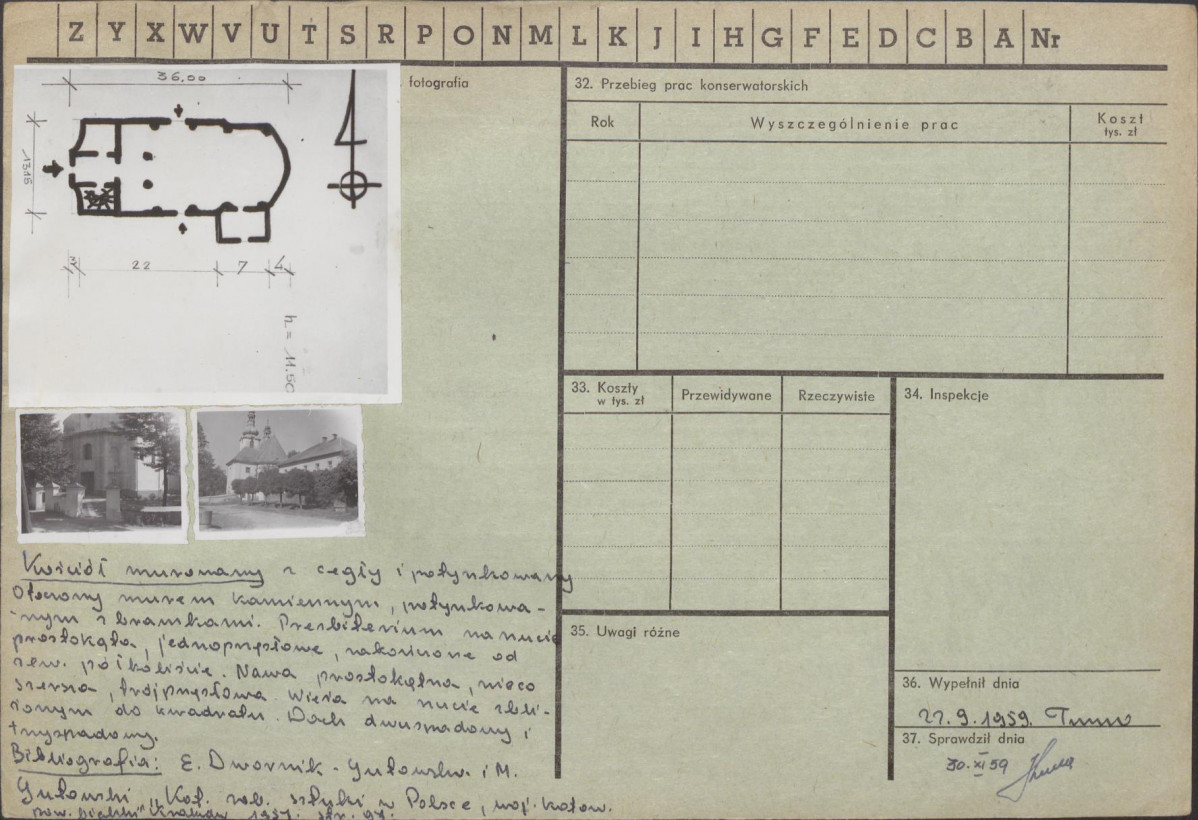 Z Y X W V U T S R P O N M L K J I H G F E D C B A Nr
36,00
1315
22 7 4
h = 11.50
fotografia
32. Przebieg prac konserwatorskich
Rok Wyszczególnienie prac Koszt
tys. zł
33. Koszty
w tys. zł
Przewidywane Rzeczywiste
34. Inspekcje
Kościół murowany z cegły i potynkowany
Otoczony murem kamiennym, potynkowa-
nym z bramkami. Presbiterium na rzucie
prostokąta, jednoprzęsłowe, zakończone od
zew. półkoliście. Nawa prostokątna, nieco
szersza, trójprzęsłowa. Wieża na rzucie zbli-
żonym do kwadratu. Dach dwuspadowy i
trzyspadowy.
Bibliografia: E. Dwornik-Gutowska i M.
Gutowski „Kat. zab. sztuki w Polsce, woj. katow.
pow. bialski" Kraków 1957. str. 97.
35. Uwagi różne
36. Wypełnił dnia
22.9.1959.
37. Sprawdził dnia
30.XI 59